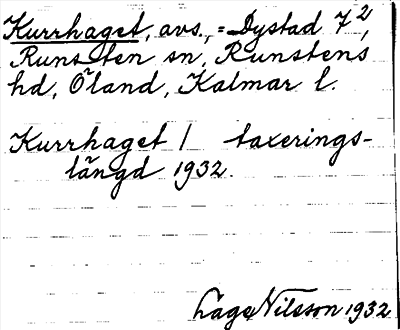 Kurrhaget, avs., = Dystad 7²,
Runsten sn, Runstens
hd, Öland, Kalmar l.
Kurrhaget / taxerings-
längd 1932.
Låge Nilsson 1932